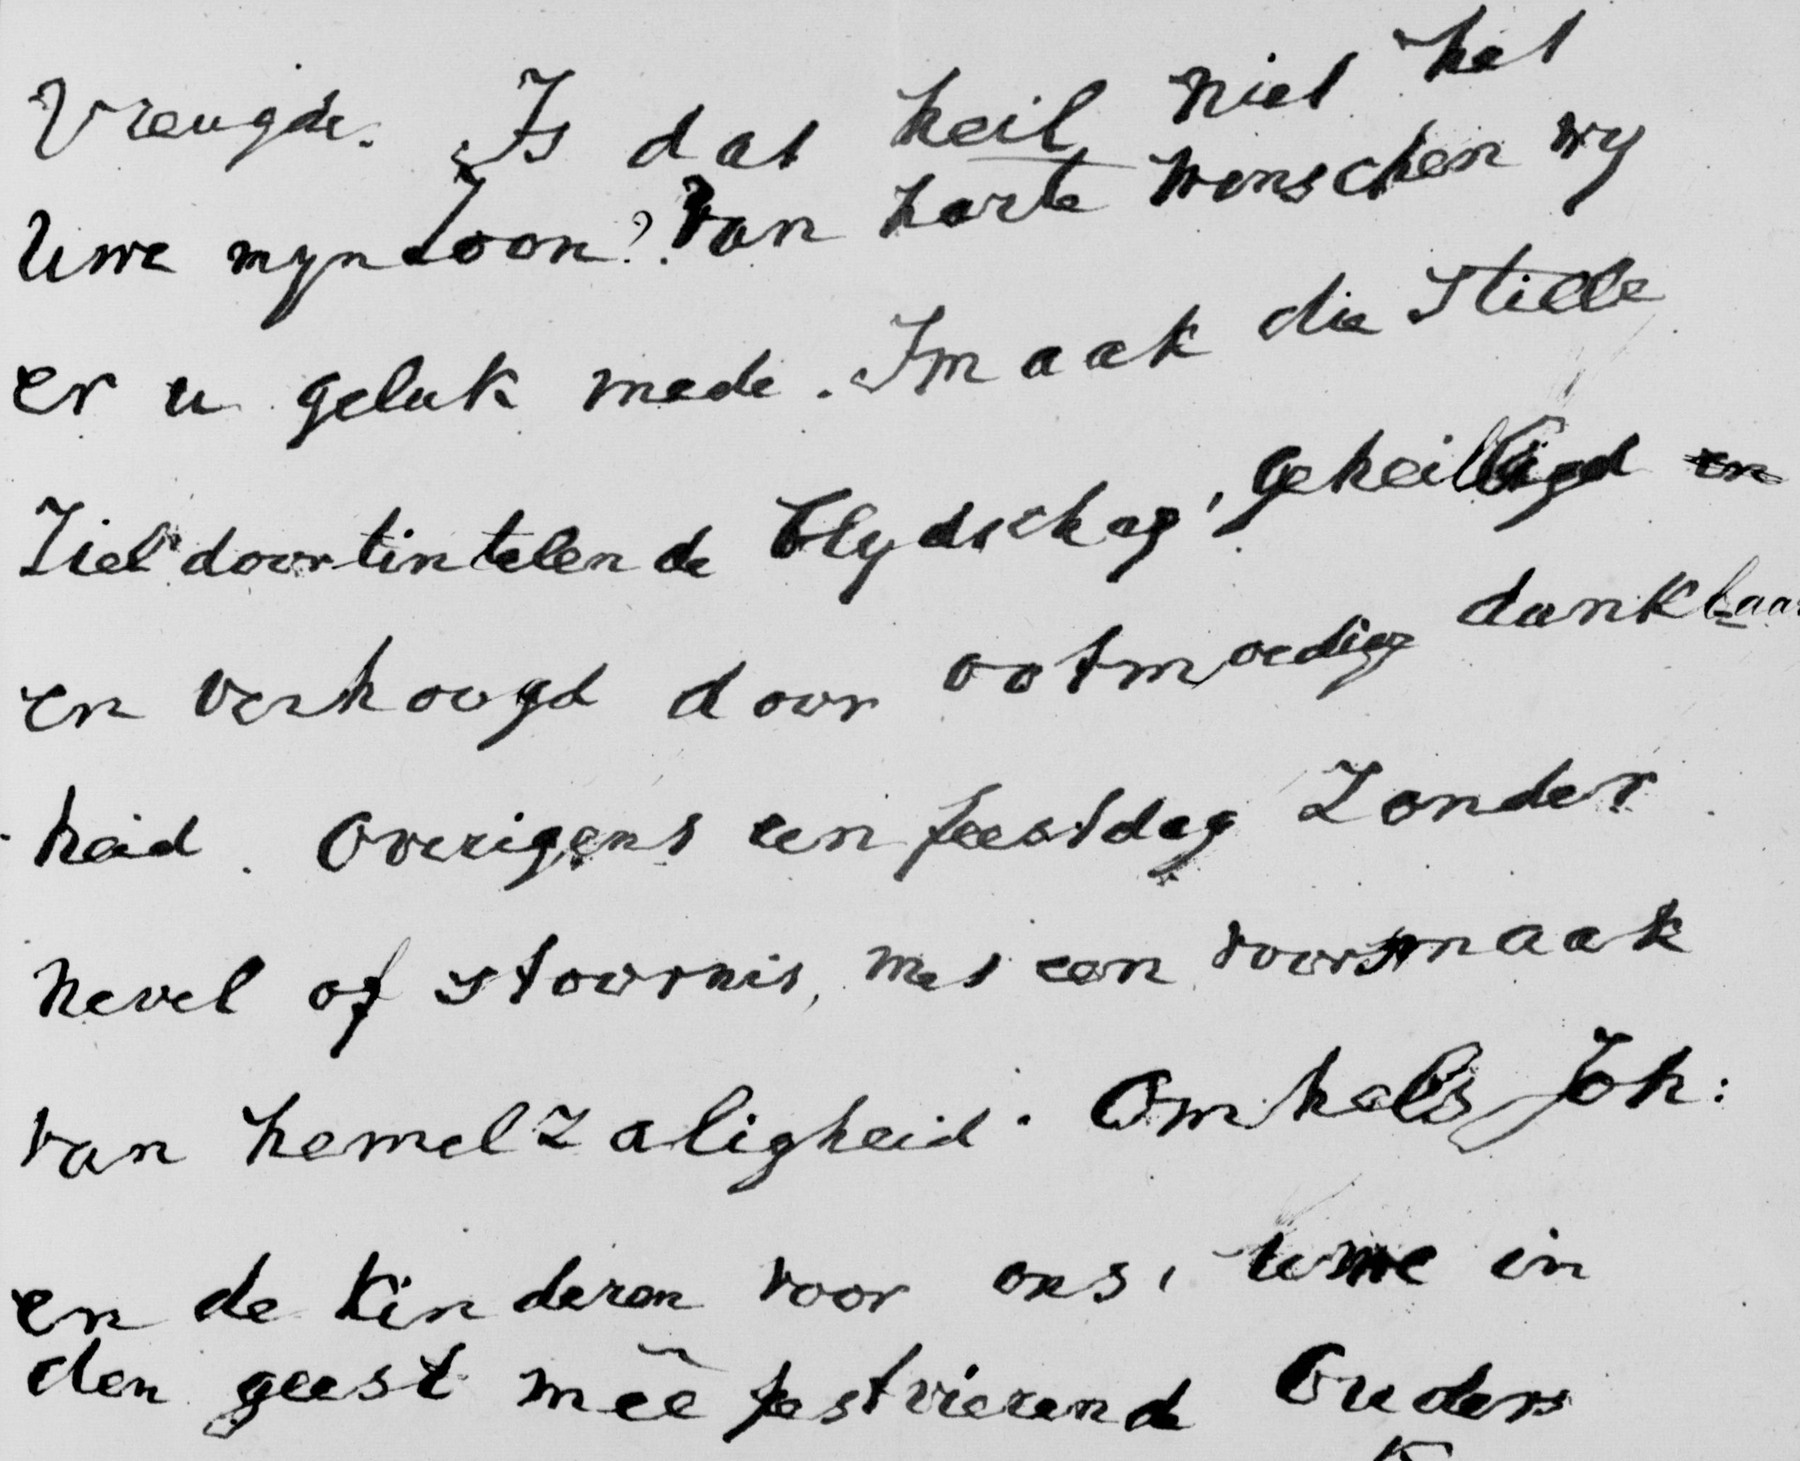 Vreugde. Is dat heil niet het
Uwe myn Zoon? Van harte wenschen wy
er u geluk mede. Smaak die stille
Ziel doortintelende blydschap, geheiligd en
en verhoogd door ootmoedige dankbaar
heid. Overigens een feestdag zonder
nevel of stoornis, met een voorsmaak
van hemelzaligheid. Omhels Joh:
en de kinderen voor ons, uwe in
den geest meê festvierende Ouders